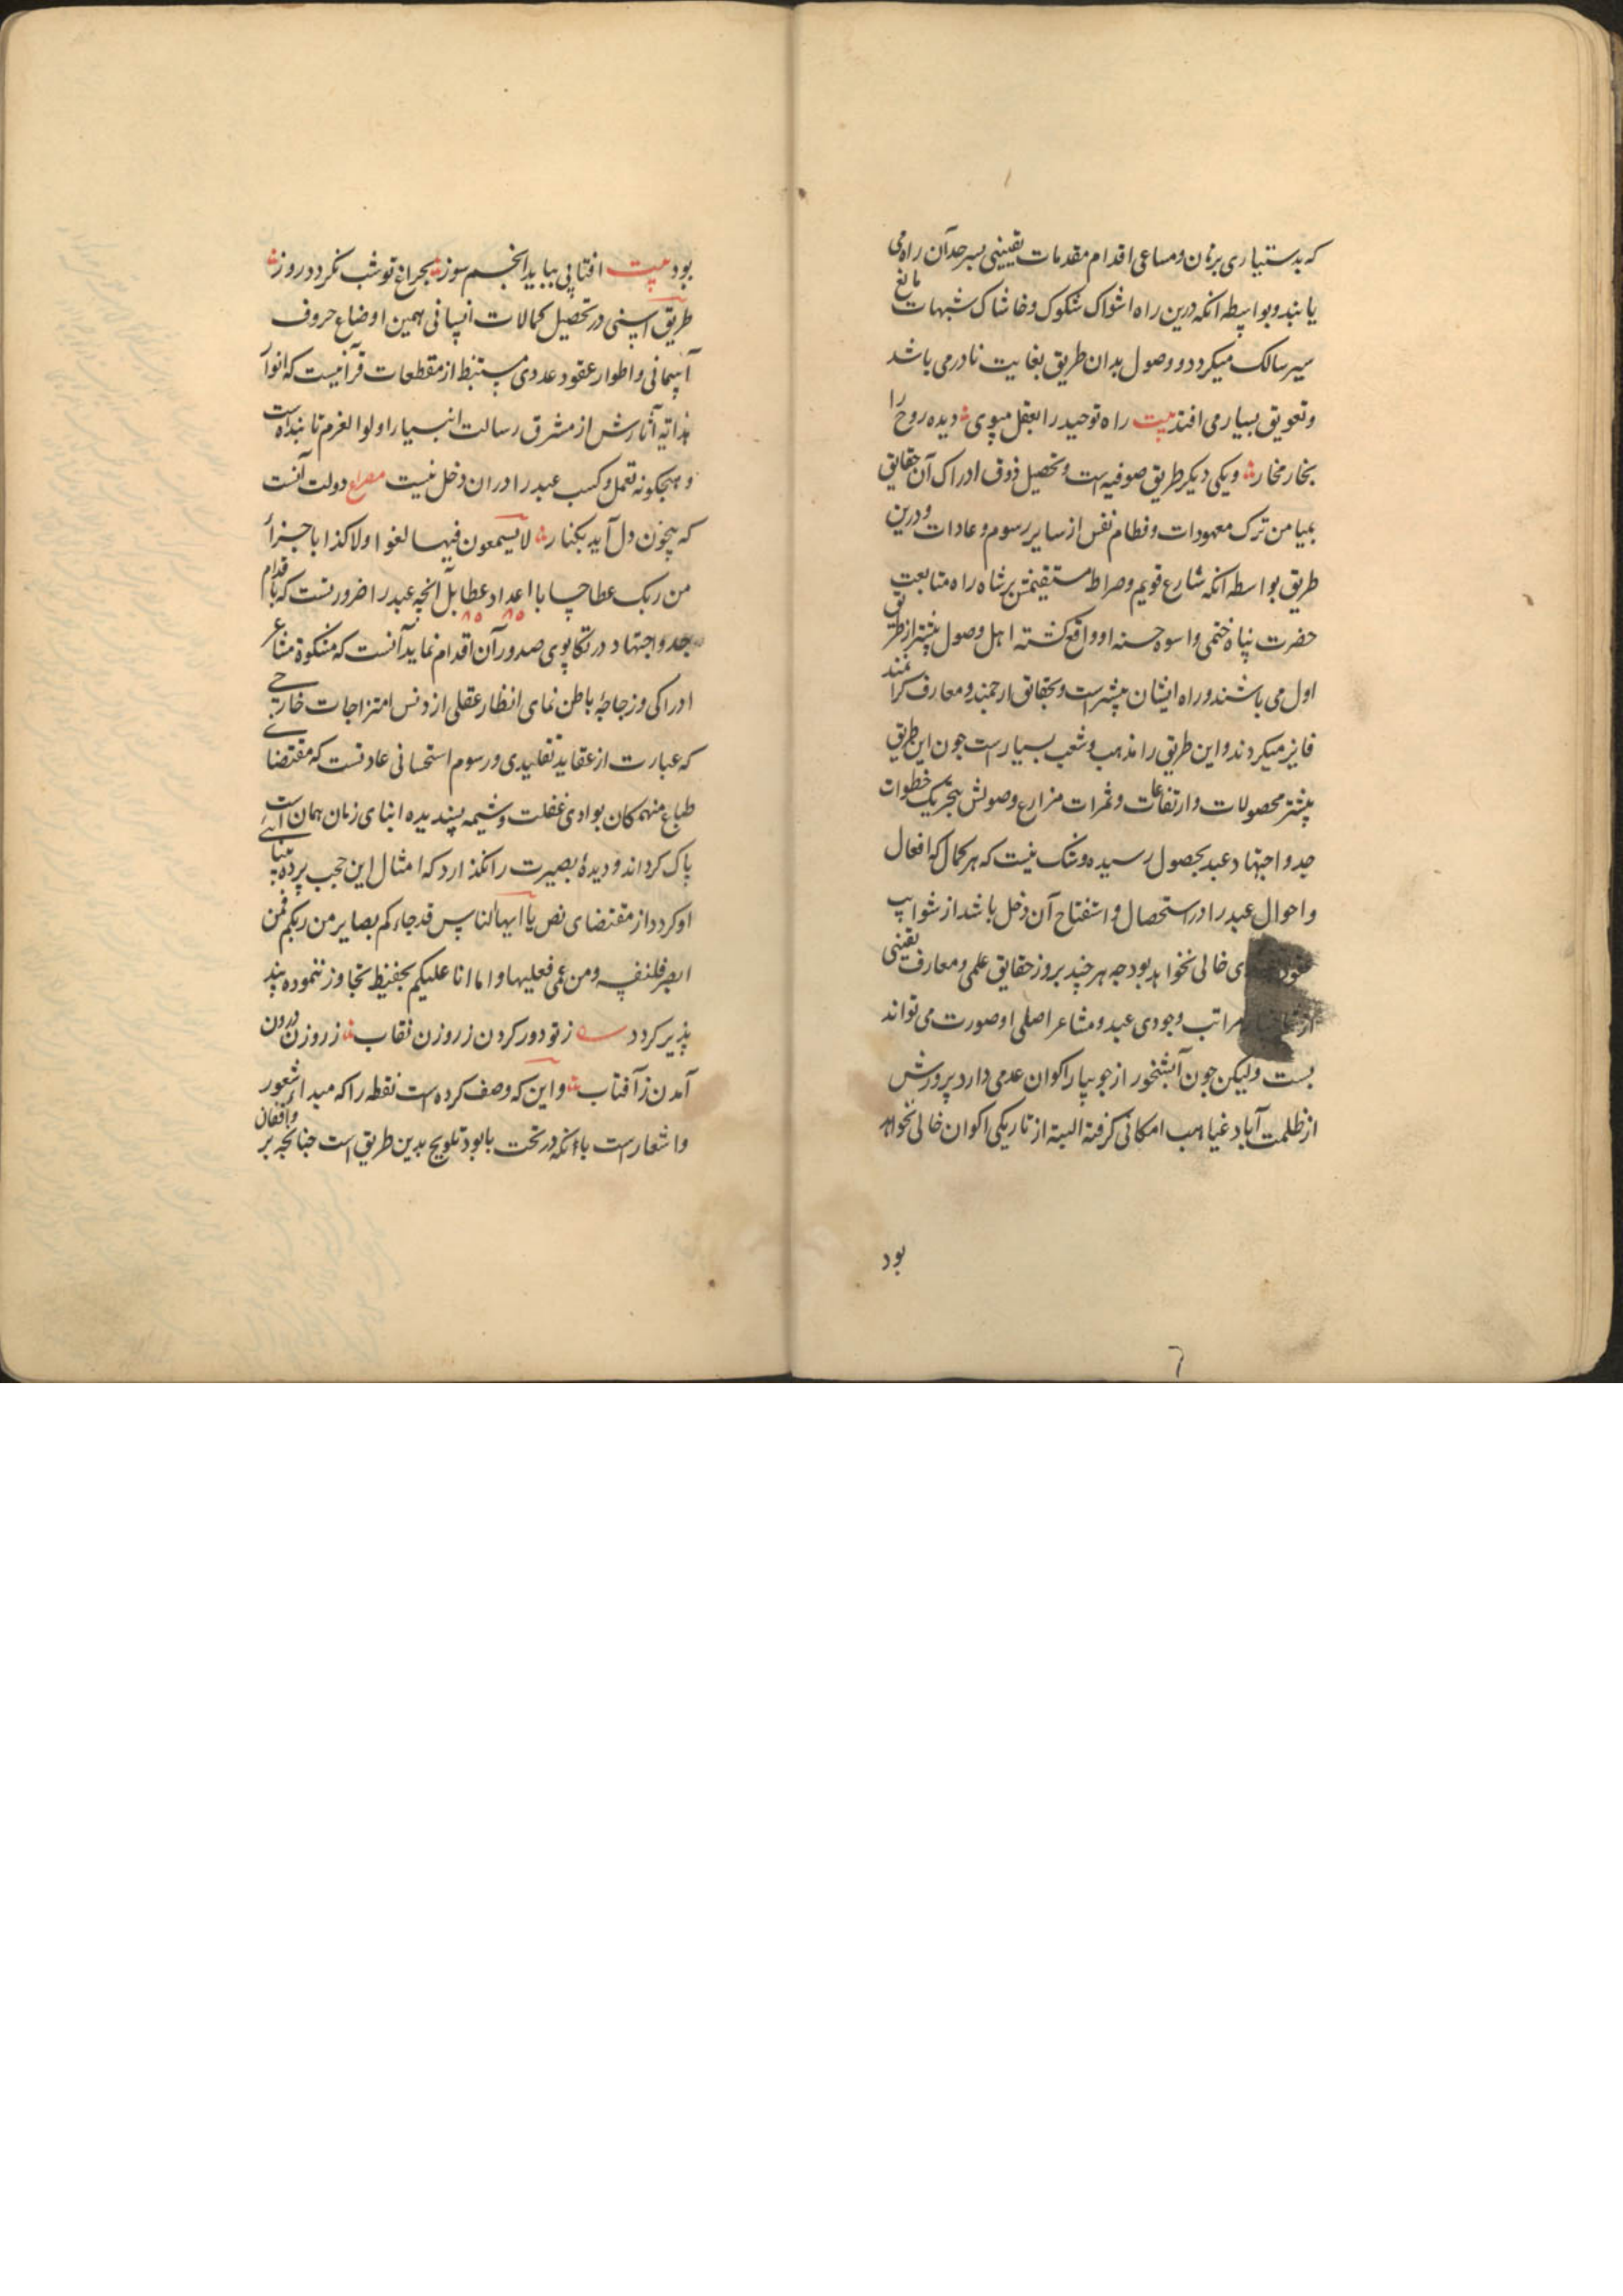 که بدستیاری برهان و مساعی اقدام مقدمات یقینی بسر حد آن راه می
یابند و بواسطه انکه درین راه اشواک شکوک و خاشاک شبهات مانع
سیر سالک میکردد و وصول بدان طریق بغایت نادر می باشد
و تعویق بسیار می افتد بیت راه توحید را بعقل مپوی دیده روح را
بخار مخار و یکی دیکر طریق صوفیه است و تحصیل ذوق ادراک آن حقایق
بمیامن ترک معهودات و فطام نفس از سایر رسوم و عادات و درین
طریق بواسطه انکه شارع قویم و صراط مستقیمش بر شاه راه متابعت
حضرت پناه ختمی و اسوه حسنه او واقع کشته اهل وصول بیشتر از طریق
اول می باشند و راه ایشان بیشتر است و بحقایق ارجمند و معارف کرامند
فایز میکردند و این طریق را مذهب و شعب بسیار است جون این طریق
بیشتر محصولات و ارتفاعات و ثمرات مزارع وصولش بتحریک خطوات
جد و اجتهاد عبد بحصول رسیده و شک نیست که هر کمال که افعال
و احوال عبد را در استحصال و استفتاح آن دخل باشد از شوایب
خالی نخواهد بود جه هر چند بروز حقایق علمی و معارف یقینی
از مراتب وجودی عبد و مشاعر اصلی او صورت می تواند
بست ولیکن جون آبشخور از جویبار اکوان عدمی دارد پرورش
از ظلمت آباد غیاهب امکانی کرفته البته از تاریکی اکوان خالی نخواهد
بود
بود بیت افتابی بباید انجم سوز بجراغ تو شب نکردد روز
طریق اسنی در تحصیل کمالات انسانی همین اوضاع حروف
آسمانی و اطوار عقود عددی مستنبط از مقطعات قرآنیست که انوار
هدایه آثارش از مشرق رسالت انبیا و اولوا العزم تابنده است
و هیجکونه تعمل و کسب عبد را در ان دخل نیست مصراع دولت آنست
که بیخون دل آید بکنار لا یسمعون فیها لغوا ولا کذابا جزاء
من ربک عطا حسابا اعداد عطا بل آنجه عبد را ضروریست که باقدام
جد و اجتهاد در تکاپوی صدور آن اقدام نماید آنست که مشکوة مشاعر
ادراکی و زجاجه باطن نمای انظار عقلی از دنس امتزاجات خارجی
که عبارت از عقاید تقلیدی و رسوم استحسانی عادتست که مقتضای
طباع منهمکان بوادی غفلت و شیمه پسندیده ابنای زمان همان است
پاک کرداند و دیده بصیرت را نکذارد که امثال این حجب پرده بینایی
او کردد از مقتضای نص یا ایها الناس قد جاءکم بصایر من ربکم فمن
ابصر فلنفسه و من عمی فعلیها و ما انا علیکم بحفیظ تجاوز ننموده پند
پذیر کردد ز تو دور کردن ز روزن نقاب ز روزن درون
آمدن ز آفتاب و این که وصف کرده است نقطه را که مبدا شعور
و اشعار است بانکه در تحت با بود تلویح بدین طریق است جنانجه بر واقفان